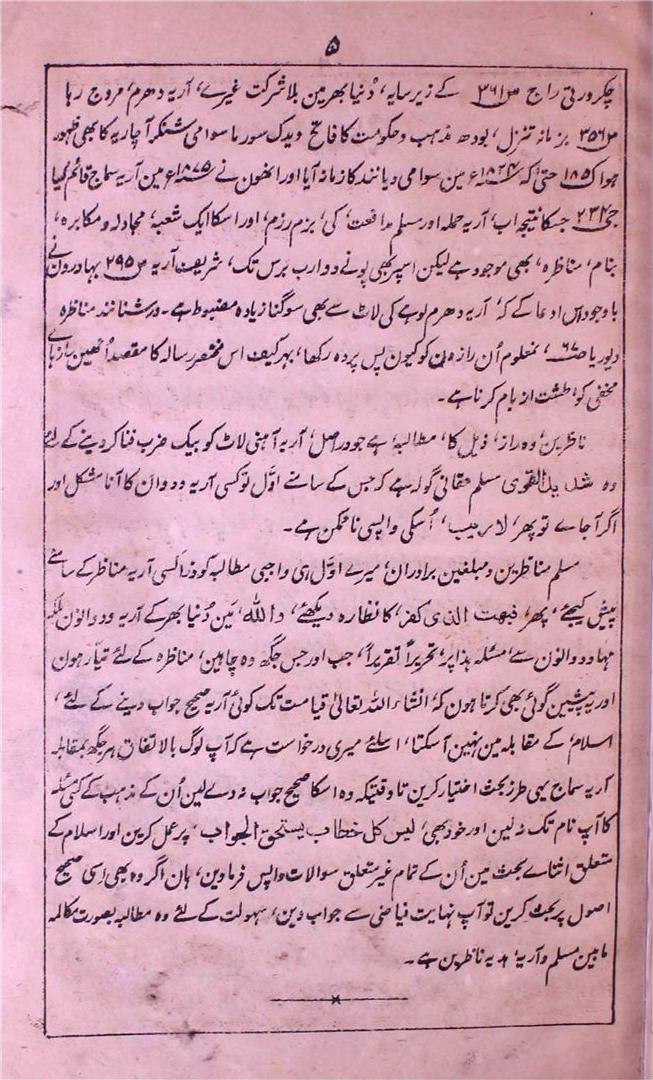 ۵
چکرورتی راج ص۳۶۱ کے زیر سایہ، دُنیا بھر مین بلا شرکت غیرے، آریہ دھرم، مروج رہا
ص۳۵۶ بزمانہ تنزل، بودھ مذہب وحکومت کا فاتح ویدک سورما سوامی شنکر آچاریہ کا بھی ظہور
ہوا ک۱۸۵ حتیٰ کہ ۱۸۲۴ء مین سوامی دیانند کا زمانہ آیا اور انھون نے ۱۸۷۵ء مین آریہ سماج قائم کیا
ج۲۳۲ جسکا نتیجہ اب، آریہ حملہ اور مسلم مدافعت، کی، بزم رزم، اور اسکا ایک شعبہ، مجادلہ و مکابرہ،
بنام، مناظرہ، بھی موجود ہے لیکن اسپر بھی پونے دو ارب برس تک، شریف آریہ ص۲۹۵ بہادرون نے
باوجود اس ادعا کے کہ، آریہ دھرم لوہے کی لاٹ سے بھی سو گنا زیادہ مضبوط ہے۔ درشنانند مناظرہ
دیوریا ص۶۷، نمعلوم اُن رازہا کو کیون پس پردہ رکھا، بہر کیف اس مختصر رسالہ کا مقصد اُنھین رازہاے
مخفی کو طشت از بام کرنا ہے۔
ناظرین، وہ راز، ذیل کا، مطالبہ، ہے جو دراصل، آریہ آہنی لاٹ کو بیک ضرب فنا کر دینے کے لئے
وہ شدید القوی مسلم حقانی گولہ ہے کہ جس کے سامنے اوّل تو کسی آریہ ودوان کا آنا مشکل اور
اگر آ جاے تو پھر، لاریب، اُسکی واپسی ناممکن ہے۔
مسلم مناظرین و مبلغین برادران، میرے اوّل ہی واجبی مطالبہ کو ذرا کسی آریہ مناظر کے سامنے
پیش کیجئے، پھر، فبهت الذی کفر، کا نظارہ دیکھئے، واللہ، مَین دُنیا بھر کے آریہ ودوانون بلکہ
مہا ودوانون سے، مسئلہ ہذا پر، تحریراً تقریراً، جب اور جس جگہ وہ چاہین، مناظرہ کے لئے تیّار ہون
اور یہ پیشین گوئی بھی کرتا ہون کہ، انشاء اللہ تعالیٰ قیامت تک کوئی آریہ صحیح جواب دینے کے لئے،
اسلام، کے مقابلہ مین نہین آ سکتا، اسلئے میری درخواست ہے کہ آپ لوگ بالاتفاق ہر جگہ بمقابلہ
آریہ سماج یہی طرز بحث اختیار کرین تا وقتیکہ وہ اسکا صحیح جواب نہ دے لین اُن کے مذہب کے کسی مسئلہ
کا آپ نام تک نہ لین اور خود بھی، لیس کل خطاب یستحق الجواب، پر عمل کرین اور اسلام کے
متعلق اثناے بحث مین اُن کے تمام غیر متعلق سوالات واپس فرما دین، ہان اگر وہ بھی اسی صحیح
اصول پر بحث کرین تو آپ نہایت فیاضی سے جواب دین، سہولت کے لئے وہ مطالبہ بصورت مکالمہ
مابین مسلم و آریہ، ہدیہ ناظرین ہے۔